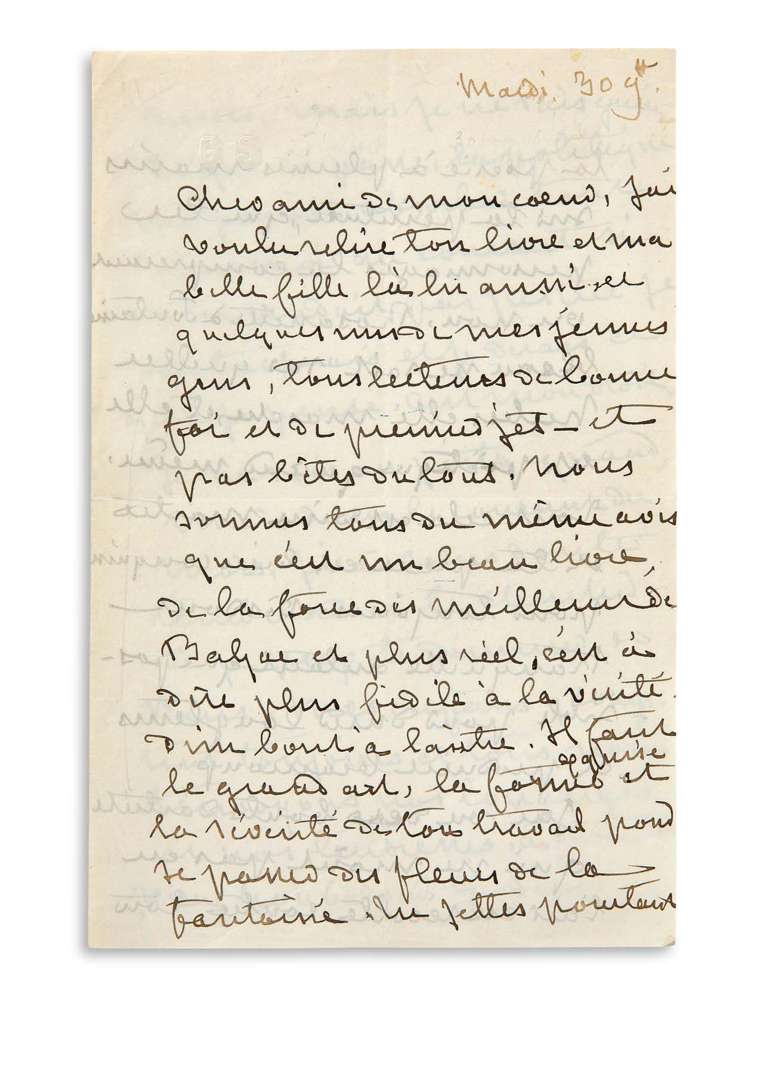 Mardi. 30 9bre.
Cher ami de mon coeur, j'ai
voulu relire ton livre et ma
belle fille l'a lu aussi, et
quelques uns de mes jeunes
gens, tous lecteurs de bonne
foi et de premier jet — et
pas bêtes du tout. Nous
sommes tous du même avis
que c'est un beau livre,
de la force des meilleurs de
Balzac et plus réel, c'est à
dire plus fidèle à la vérité
d'un bout à l'autre. Il faut
le grand art, la forme exquise et
la sévérité de ton travail pour
se passer des fleurs de la
fantaisie. Tu jettes pourtant